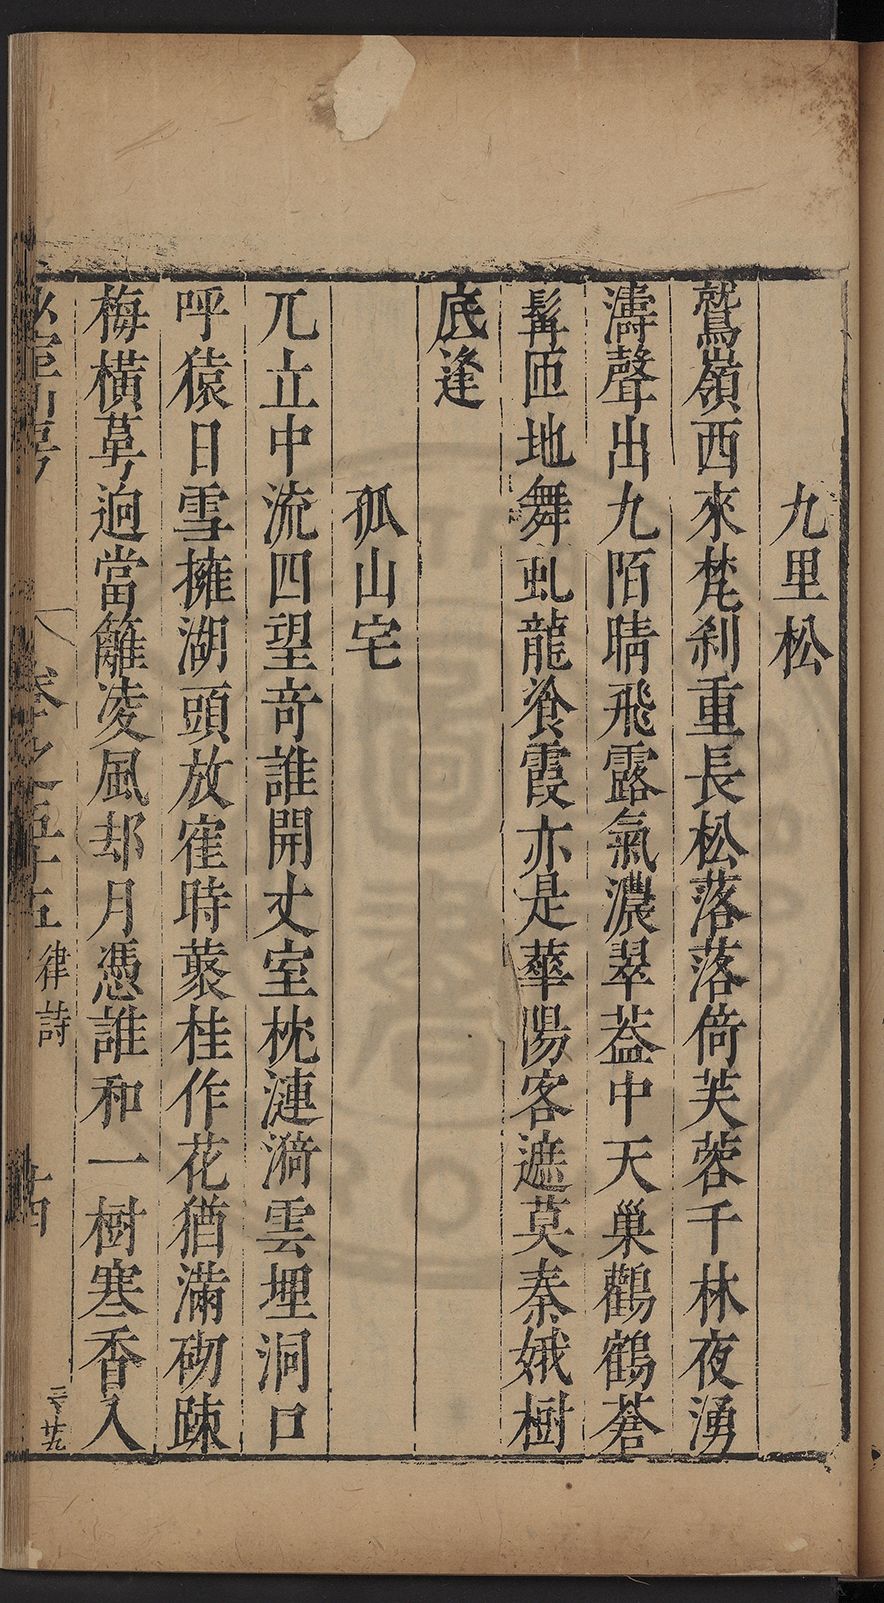 九里松
鷲嶺西來梵刹重長松落落倚芙蓉千林夜湧
濤聲出九陌晴飛露氣濃翠蓋中天巢鸛鶴蒼
髯匝地舞虬龍飡霞亦是華陽客遮莫秦娥樹
底逢
孤山宅
兀立中流四望竒誰開丈室枕漣漪雲埋洞口
呼猿日雪擁湖頭放寉時蘂桂作花猶滿砌踈
梅橫萼逈當籬凌風却月憑誰和一樹寒香入
卷之五十五 律詩